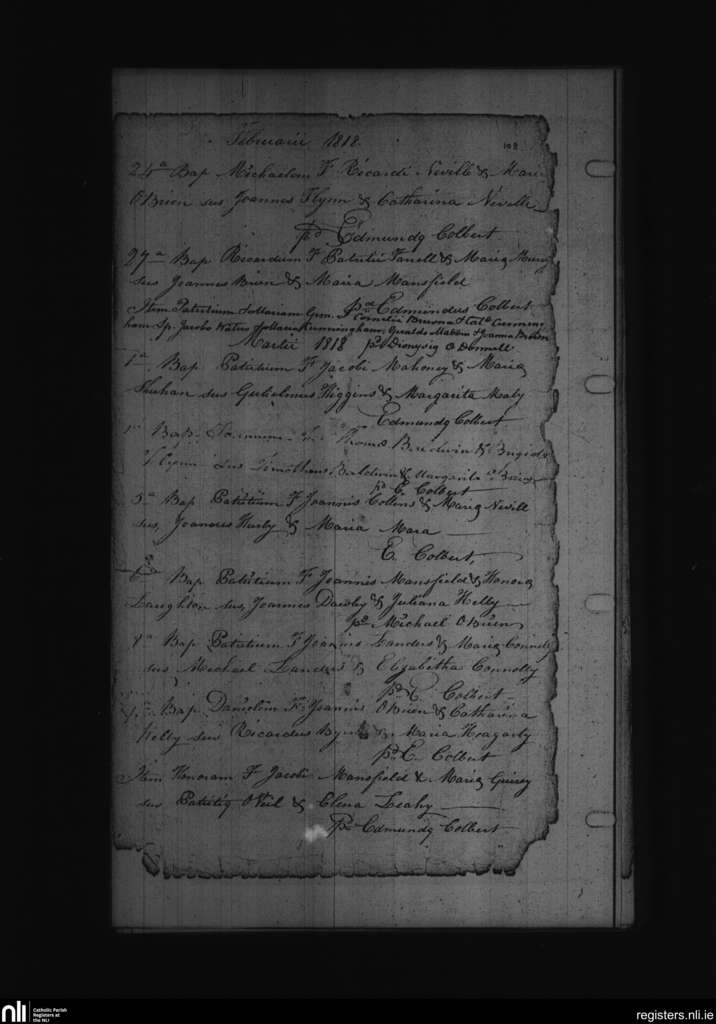 Februarii 1818.
108
24ª Bap Michaelem F Ricardi Neville & Maria
OBrien sus Joannes Flynn & Catharina Neville
pd Edmundq Colbert
27ª Bap Ricardum F Patritii Farrell & Maria
sus Joannes Brien & Maria Mansfield
pd Edmundus Colbert
Item Patritium & Mariam Gem. Cornelii Browne & Cat.
Sp. Jacobo Waters & Maria Cunningham, & Joanna Brown
Martii 1818 pd Dionysiq O Donnell
1ª Bap Patritium F Jacobi Mahoney & Maria
Shehan sus Gulielmus Higgins & Margarita Healy
Edmundq Colbert
1ª Bap F Thomæ Baldwin & Brigida
Flynn sus Timotheus Baldwin & Margarita
pd E. Colbert
5ª Bap Patritium F Joannis Collins & Maria Nevill
sus, Joannes Hurly & Maria Mara
E. Colbert,
6ª Bap Patritium F Joannis Mansfield & Honora
Laughlon sus, Joannes & Juliana Kelly
pd Michael OBrien
Bap Patritium F Joannis Landers & Maria Connolly
sus Michael Landers & Elizabetha Connolly
pd E Colbert
Bap Danielem F Joannis OBrien & Catharina
Kelly sus Ricardus & Maria Heagarty
pd E. Colbert
Item Honoram F Jacobi Mansfield & Maria
sus Patritiq ONeil & Elena Leahy
pd Edmundq Colbert
nli
Catholic Parish
Registers at
the NLI
registers.nli.ie